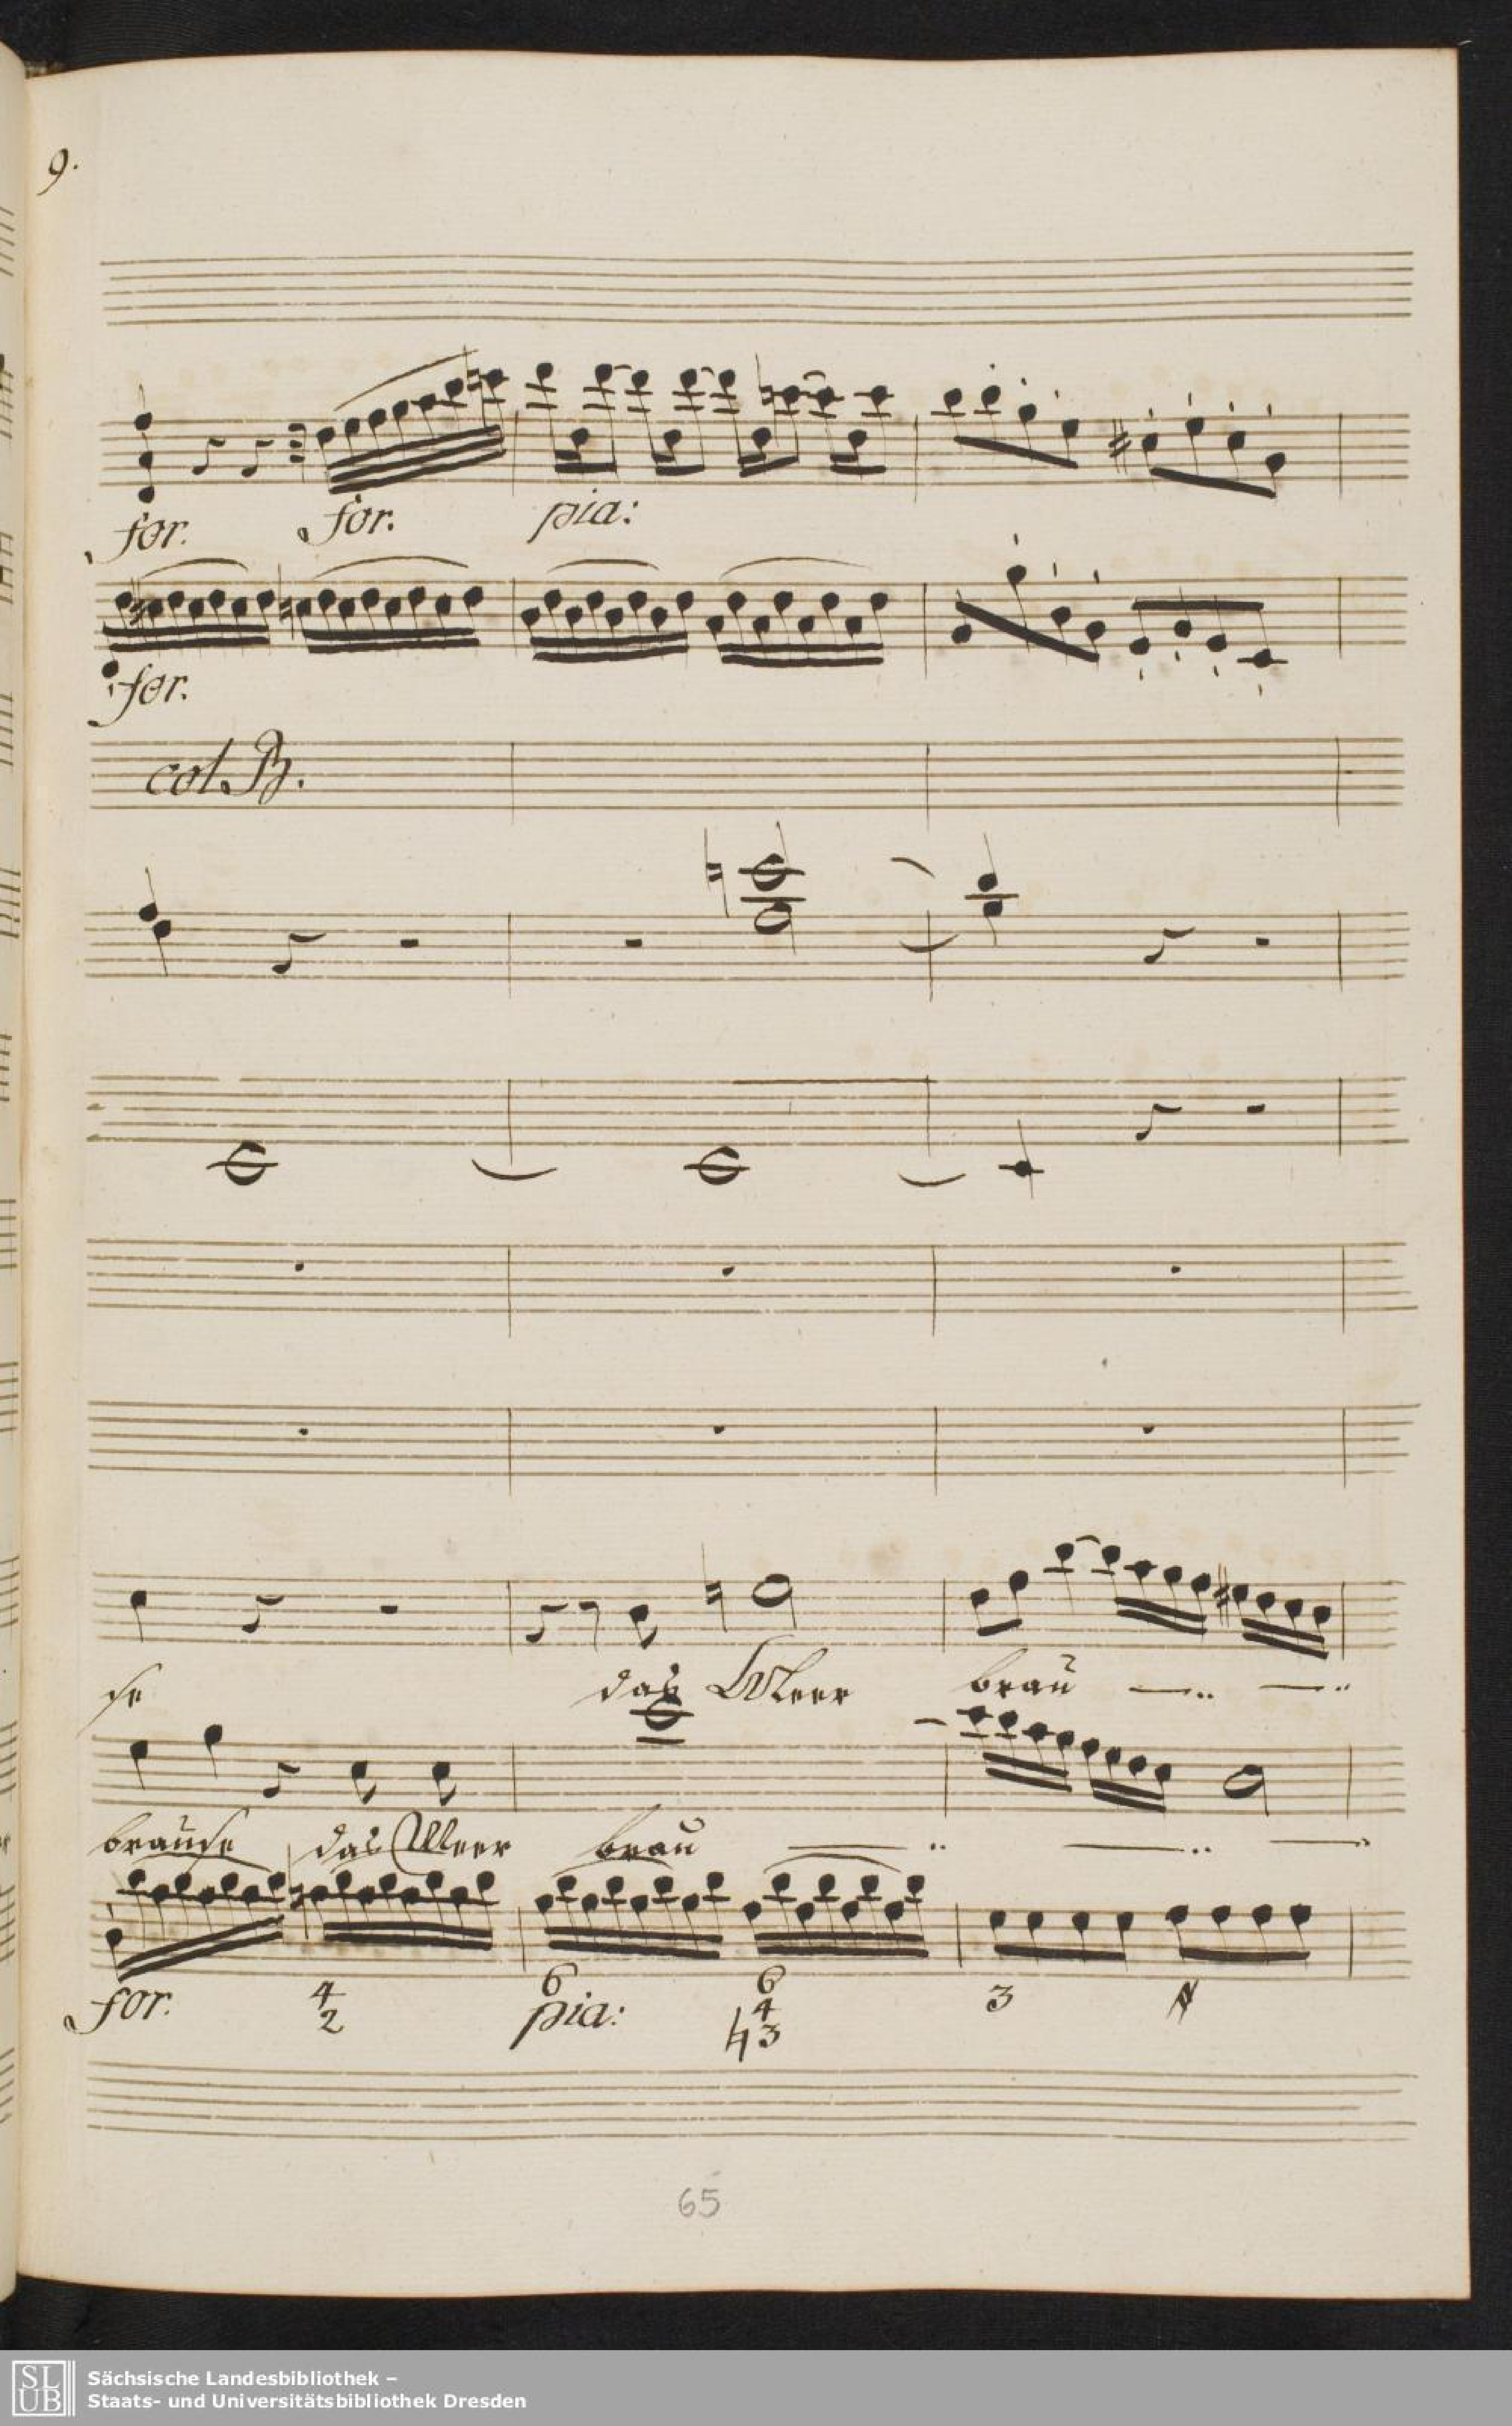 9.
for. for. pia:
for.
col. B.
se das Meer brau
brause das Meer brau
for. 4 2 6 pia: 6 4 ♮3 3 #
65
SLUB
Sächsische Landesbibliothek –
Staats- und Universitätsbibliothek Dresden